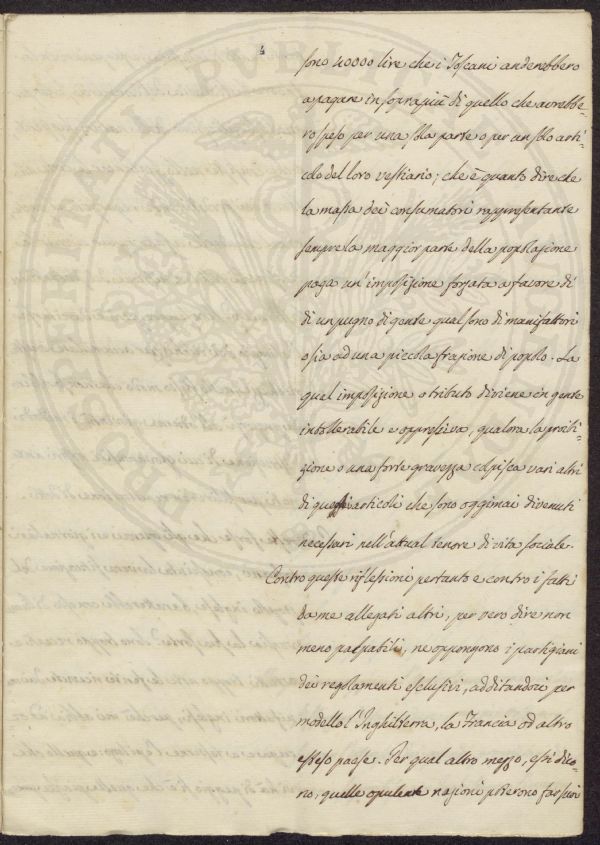 4
sono 40000 lire che i Toscani anderebbero
a pagare in soprapiù di quello che avrebbe-
ro speso per una sola parte o per un solo arti-
colo del loro vestiario; che è quanto dire che
la massa dei consumatori rappresentante
sempre la maggior parte della popolazione
paga un' imposizione forzata a favore di
di un pugno di gente qual sono di manifattori
o sia ad una piccola frazione di popolo. La
qual imposizione o tributo diviene
intollerabile e oppressiva, qualora la proibi-
zione o una forte gravezza colpisca vari altri
di quegli articoli che sono oggimai divenuti
necessari nell'attual tenore di vita sociale.
Contro queste riflessioni pertanto e contro i fatti
da me allegati altri, per vero dire non
meno palpabili, ne oppongono i partigiani
dei regolamenti esclusivi, additandoci per
modello l'Inghilterra, la Francia od altro
estero paese. Per qual altro mezzo, essi dico-
no, quelle opulente nazioni poterono farsi